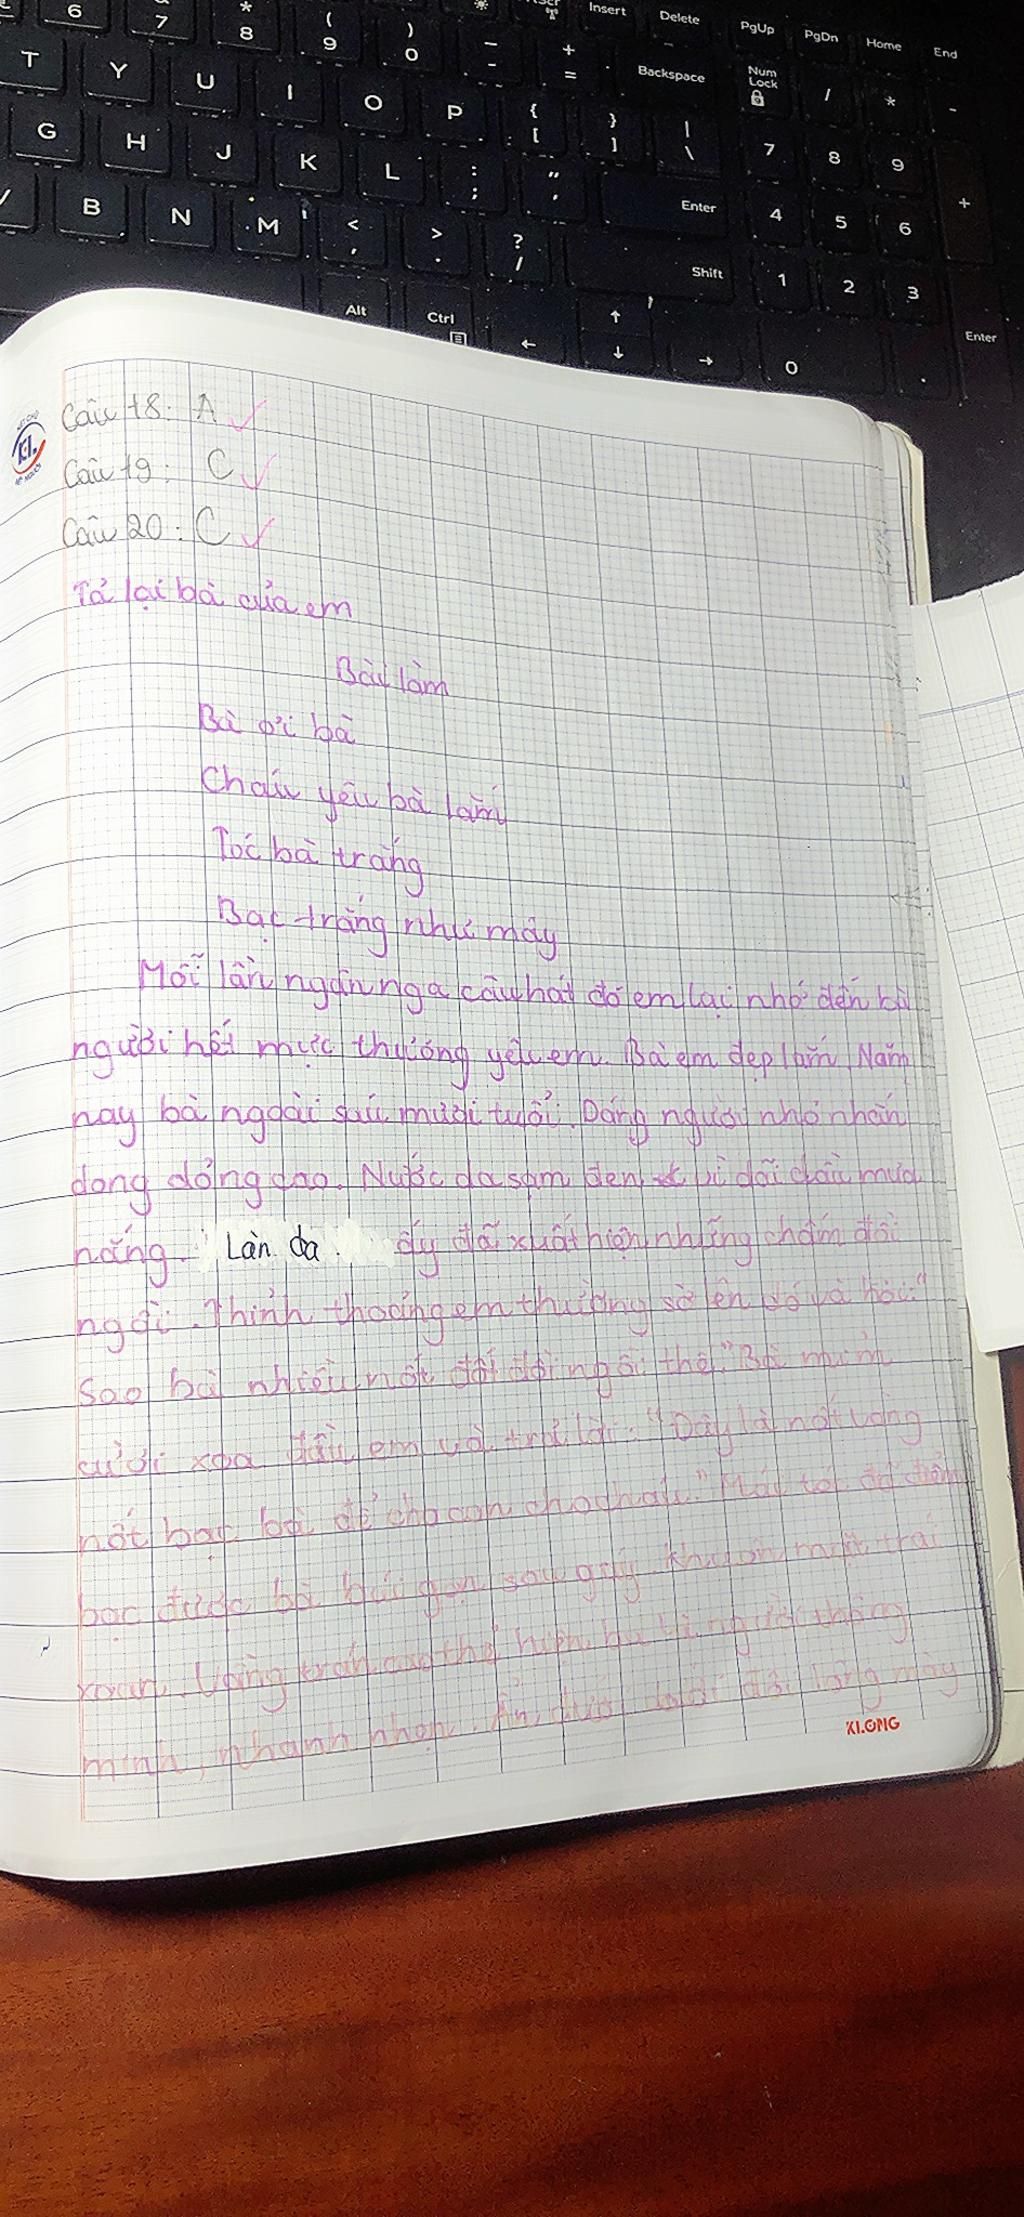 6 7 * 8 ( 9 ) 0 _ - + = Backspace Insert Delete PgUp PgDn Home End
T Y U I O P { [ } ] | \ Num Lock / * -
G H J K L : ; " ' Enter 7 8 9 +
B N M < , > . ? / Shift 4 5 6
Alt Ctrl 1 2 3 Enter
0 .
KL
Câu 18: A
Câu 19: C
Câu 20: C
Tả lại bà của em
Bài làm
Bà ơi bà
Cháu yêu bà lắm
Tóc bà trắng
Bạc trắng như mây
Mỗi lần ngân nga câu hát đó em lại nhớ đến bà
người hết mực thương yêu em. Bà em đẹp lắm. Năm
nay bà ngoài sáu mươi tuổi. Dáng người nhỏ nhắn
dong dỏng cao. Nước da sạm đen vì dãi dầu mưa
nắng. Làn da ấy đã xuất hiện những chấm đồi
ngồi. Thỉnh thoảng em thường sờ lên đó và hỏi: "
Sao bà nhiều nốt đồi ngồi thế." Bà mỉm
cười xoa đầu em và trả lời: "Đây là nốt vàng
nốt bạc bà để cho con cho cháu." Mái tóc đã điểm
bạc được bà búi gọn sau gáy. Khuôn mặt trái
xoan. Vầng trán cao thể hiện bà là người thông
minh, nhanh nhẹn. Ẩn dưới đôi lông mày
KLONG